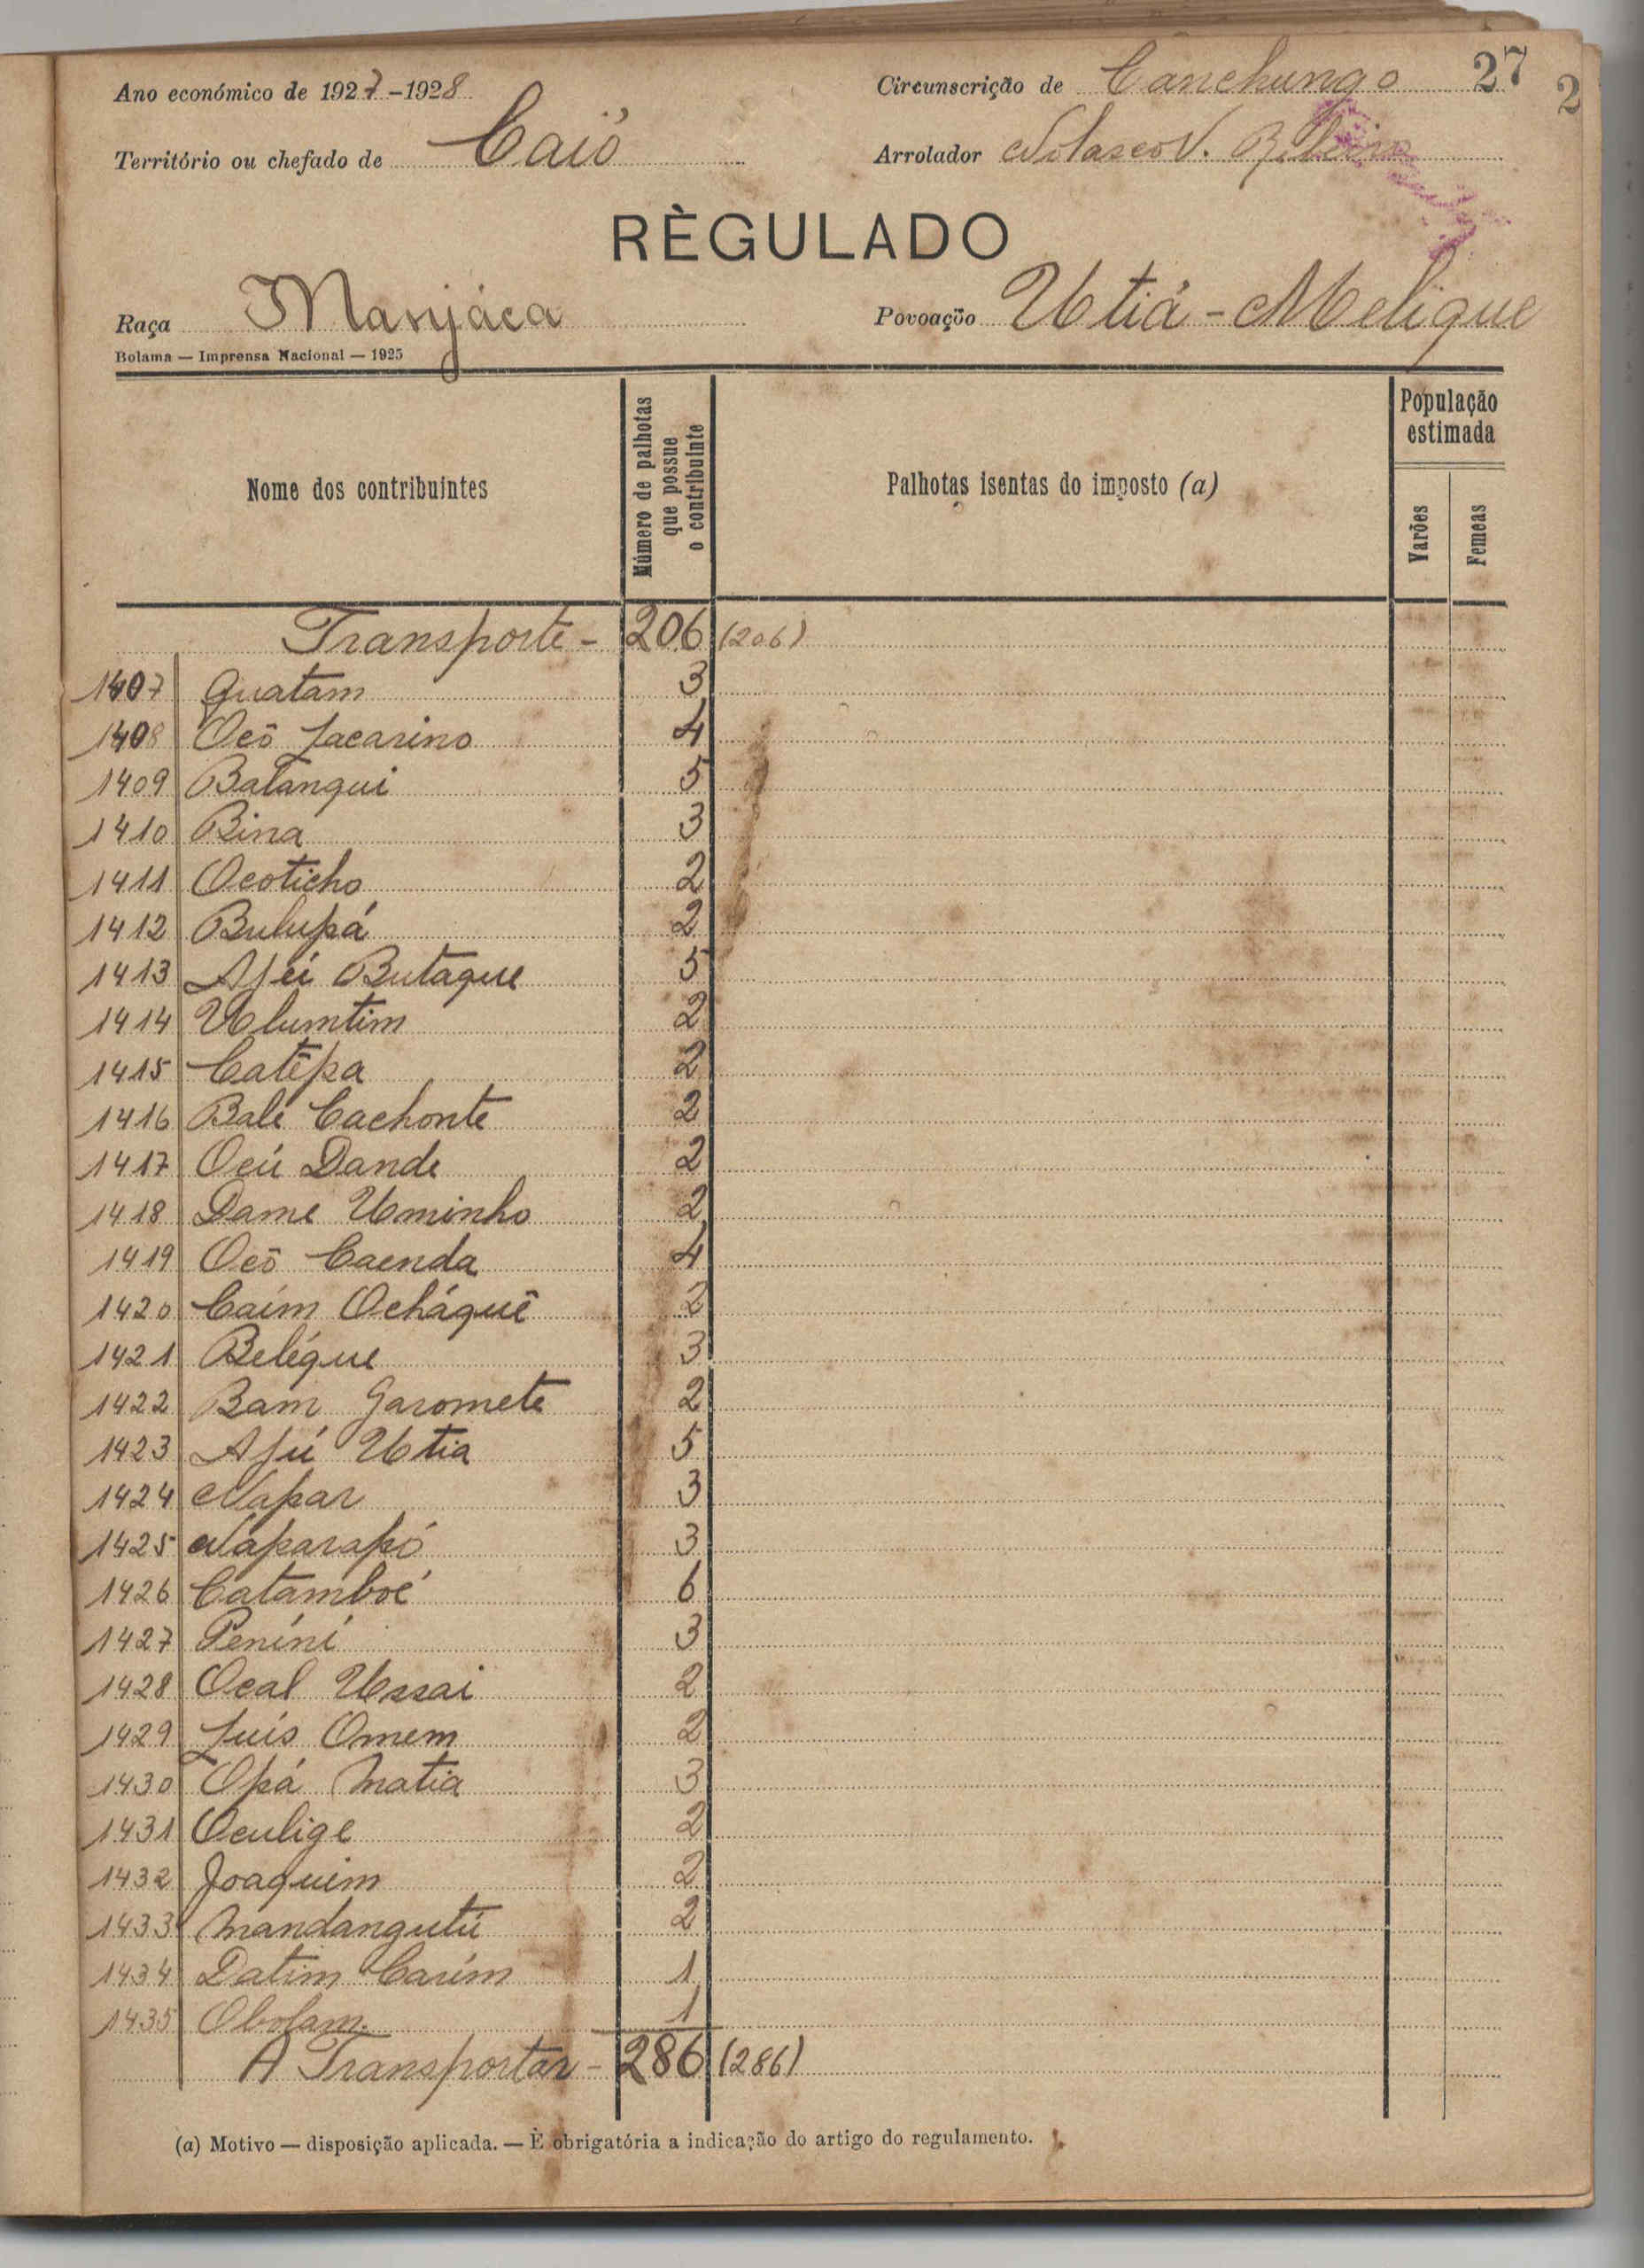 27
2
Ano económico de 1927-1928
Circunscrição de Canchungo
Território ou chefado de Caió
Arrolador Nolasco V. Ribeiro
RÈGULADO
Raça Manjáca
Povoação Utiá-Melique
Bolama — Imprensa Nacional — 1925
Nome dos contribuintes
Número de palhotas que possue o contribuinte
Palhotas isentas do imposto (a)
População estimada
Varões
Femeas
Transporte - 206 (206)
1407 Quatam 3
1408 Ocô Jacarino 4
1409 Batangui 5
1410 Bina 3
1411 Ocoticho 2
1412 Bulupá 2
1413 Ajei Butaque 5
1414 Ulumtim 2
1415 Catêpa 2
1416 Balé Cachonte 2
1417 Ocú Dande 2
1418 Dame Uminho 2
1419 Ocô Caenda 4
1420 Caím Ocháquê 2
1421 Beléque 3
1422 Bam Garomete 2
1423 Ajú Utia 5
1424 Napar 3
1425 Naparapó 3
1426 Catamboé 6
1427 Peníní 3
1428 Ocal Ussai 2
1429 Luís Omem 2
1430 Opá Matia 3
1431 Oculige 2
1432 Joaquim 2
1433 Mandangutú 2
1434 Datim Carím 1
1435 Obolam 1
A Transportar - 286 (286)
(a) Motivo — disposição aplicada. — È obrigatória a indicação do artigo do regulamento.